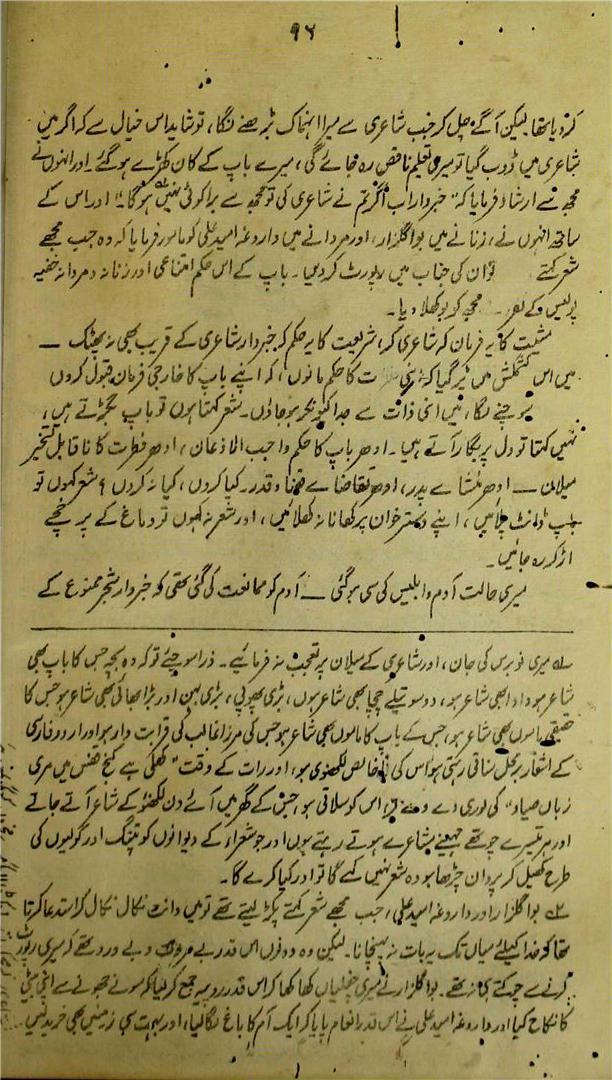 ۹۶
کر دیا تھا لیکن آگے چل کر جب شاعری سے میرا انہماک بڑھنے لگا، تو شاید اس خیال سے کہ اگر میں
شاعری میں ڈوب گیا تو میری تعلیم ناقص رہ جائے گی، میرے باپ کے کان کھڑے ہو گئے۔ اور انہوں نے
مجھ سے ارشاد فرمایا کہ "خبردار اب اگر تم نے شاعری کی تو مجھ سے برا کوئی نہیں ہو گا۔" اور اس کے
ساتھ انہوں نے، زنانے میں بوا گلزار، اور مردانے میں داروغہ امید علی کو مامور فرمایا کہ وہ جب مجھے
شعر کہتے تو ان کی جناب میں رپورٹ کر دیں۔ باپ کے اس حکم امتناعی اور زنانہ و مردانہ خفیہ
پولیس کے مجھ کو بوکھلا دیا۔
مشیت کا یہ فرمان کہ شاعری کر، شریعت کا یہ حکم کہ خبردار شاعری کے قریب بھی نہ پھٹک —
میں اس کشمکش میں پڑ گیا کہ اپنی کا حکم مانوں، کہ اپنے باپ کا خارجی فرمان قبول کروں
سوچنے لگا، میں اپنی ذات سے جدا کیونکر ہو جاؤں۔ شعر کہتا ہوں تو باپ بگڑتے ہیں،
نہیں کہتا تو دل پر بگار آتے ہیں۔ ادھر باپ کا حکم واجب الاذعان، ادھر فطرت کا ناقابل تسخیر
میلان — ادھر منشاے پدر، ادھر تقاضاے قضا و قدر۔ کیا کروں، کیا نہ کروں؟ شعر کہوں تو
باپ ڈانٹ پلائیں، اپنے دسترخوان پر کھانا نہ کھلائیں، اور شعر نہ کہوں تو دماغ کے پرخچے
اڑ کر رہ جائیں۔
میری حالت آدم و ابلیس کی سی ہو گئی — آدم کو ممانعت کی گئی تھی کہ خبردار شجر ممنوع کے
۱؎ میری نو برس کی جان، اور شاعری کے میلان پر تعجب نہ فرمائیے۔ ذرا سوچئے تو کہ وہ بچہ جس کا باپ بھی
شاعر ہو دادا بھی شاعر ہو، دو سوتیلے چچا بھی شاعر ہوں، بڑی پھوپی، بڑی بہن اور بڑا بھائی بھی شاعر ہو جس کا
حقیقی ماموں بھی شاعر ہو، جس کے باپ کا ماموں بھی شاعر ہو جس کی مرزا غالب کی قرابت دار ہو اور اردو فارسی
کے اشعار برمحل سناتی رہتی ہو اس کی انا خالص لکھنوی ہو، اور رات کے وقت "کھلی ہے کنج قفس میں مری
زباں صیاد" کی لوری دے دے کر، اس کو سلاتی ہو، جس کے گھر میں آئے دن لکھنؤ کے شاعر آتے جاتے
اور ہر تیسرے چوتھے مہینے مشاعرے ہوتے رہتے ہوں اور جو شعراء کے دیوانوں کو پتنگ اور گولیوں کی
طرح کھیل کر پروان چڑھا ہو وہ شعر نہیں کہے گا تو اور کیا کرے گا۔
۲؎ بوا گلزار اور داروغہ امید علی، جب مجھے شعر کہتے پکڑ لیتے تھے تو میں دانت نکال نکال کر استدعا کرتا
تھا کہ خدا کیلئے میاں تک یہ بات نہ پہنچانا۔ لیکن وہ دونوں اس قدر بے مروت و بے درد تھے کہ میری رپورٹ
کرنے سے چوکتے ہی نہ تھے۔ بوا گلزار نے میری چغلیاں کھا کھا کر اس قدر روپیہ جمع کر لیا کہ سونے جھونے سے اپنی بیٹی
کا نکاح کیا اور داروغہ امید علی نے اس قدر انعام پایا کہ ایک آم کا باغ لگا لیا، اور بہت سی زمینیں بھی خرید لیں۔